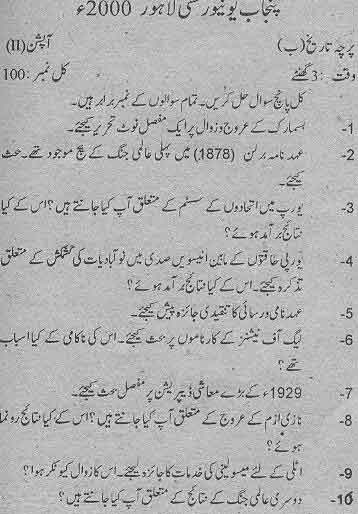 پنجاب یونیورسٹی لاہور 2000ء
پرچہ تاریخ (ب) آپشن (II)
وقت : 3 گھنٹے کل نمبر : 100
کل پانچ سوال حل کریں۔ تمام سوالوں کے نمبر برابر ہیں۔
1- بسمارک کے عروج و زوال پر ایک مفصل نوٹ تحریر کیجئے۔
2- عہد نامہ برلن (1878) میں پہلی عالمی جنگ کے بیج موجود تھے۔ بحث
کیجئے۔
3- یورپ میں اتحادوں کے سسٹم کے متعلق آپ کیا جانتے ہیں؟ اس کے کیا
نتائج برآمد ہوئے؟
4- یورپی طاقتوں کے مابین انیسویں صدی میں نوآبادیات کی کشمکش کے متعلق
تذکرہ کیجئے۔ اس کے کیا نتائج برآمد ہوئے؟
5- عہد نامی ورسائی کا تنقیدی جائزہ پیش کیجئے۔
6- لیگ آف نیشنز کے کارناموں پر بحث کیجئے۔ اس کی ناکامی کے کیا اسباب
تھے؟
7- 1929ء کے بڑے معاشی ڈیپریشن پر مفصل بحث کیجئے۔
8- نازی ازم کے عروج کے متعلق آپ کیا جانتے ہیں؟ اس کے کیا نتائج رونما
ہوئے؟
9- اٹلی کے لئے میسولینی کی خدمات کا جائزہ لیجئے۔ اس کا زوال کیونکر ہوا؟
10- دوسری عالمی جنگ کے نتائج کے متعلق آپ کیا جانتے ہیں؟